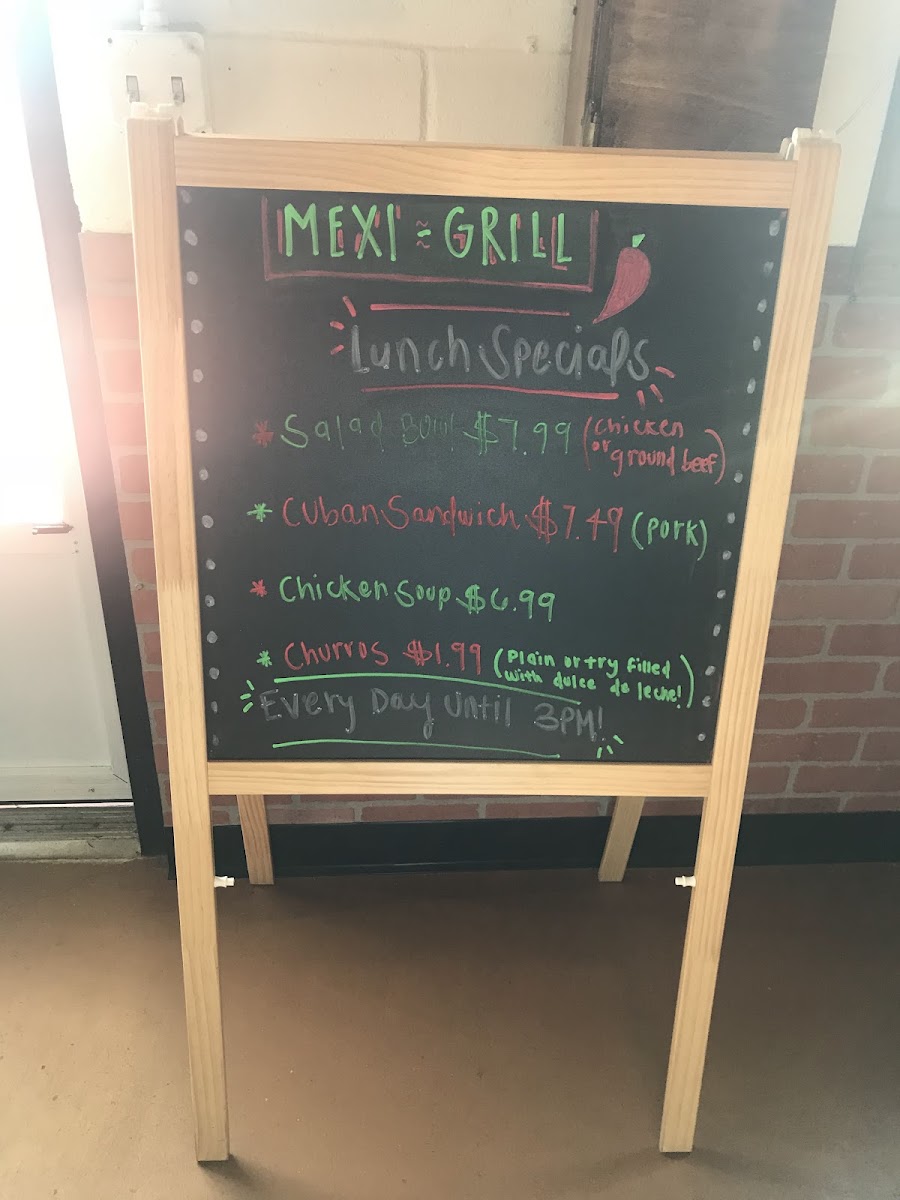 MEXI ~ GRILL
Lunch Specials
* Salad Bowl $7.99 (chicken or ground beef)
* Cuban Sandwich $7.49 (pork)
* Chicken Soup $6.99
* Churros $1.99 (Plain or try filled
with dulce de leche!)
Every Day Until 3PM!